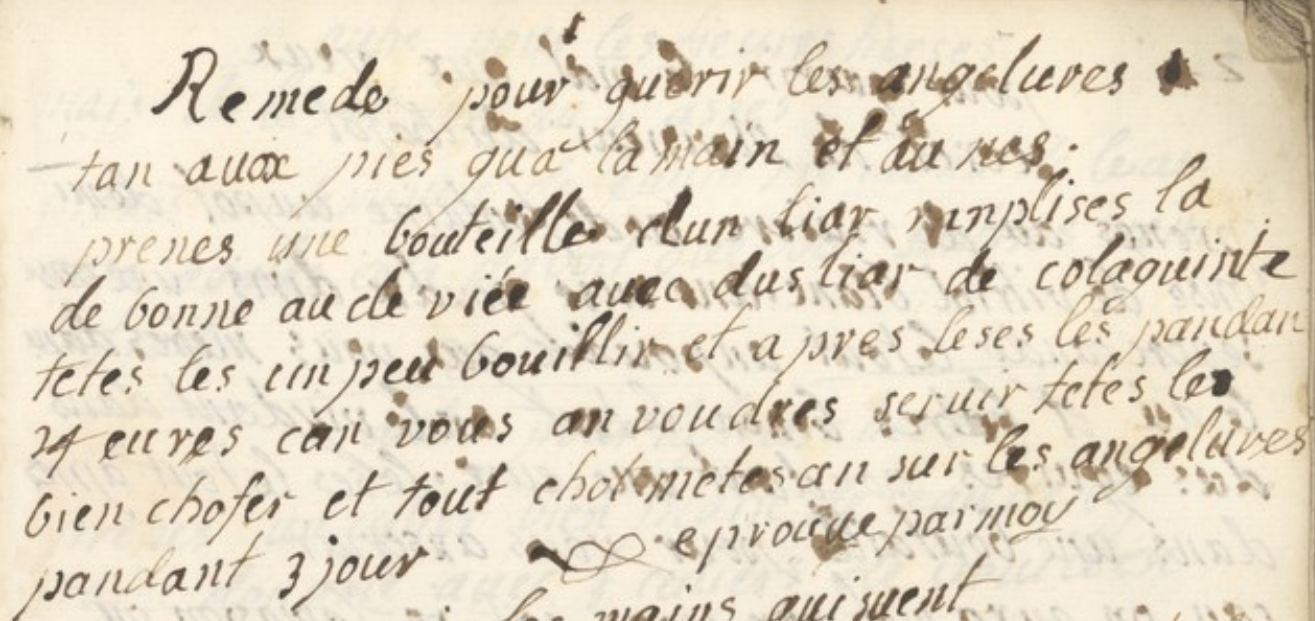 Remede pour guerir les angelures
tan auox pies qua la main et au nes.
prenes une bouteille dun liar ranplises la
de bonne au de viée avec dus liar de colaquinte
fetes les un peu bouillir et apres leses les pandan
24 eures can vous an voudres servir fetes les
bien chofer et tout chot metes an sur les angelures
pandant 3 jour eprouve par moy
les mains qui suent